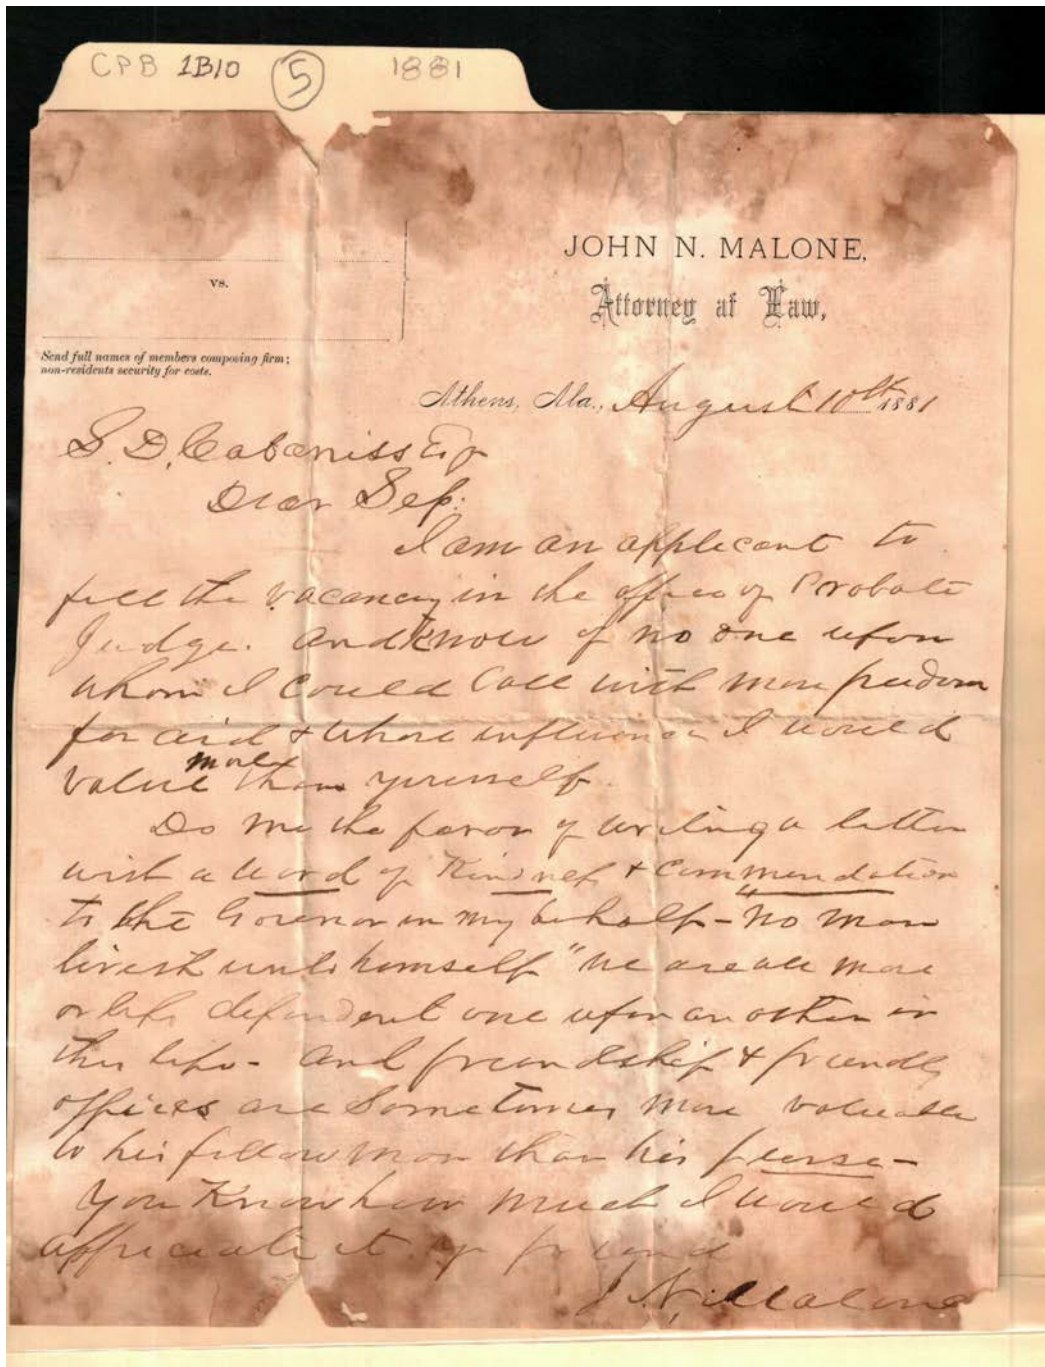 CPB 1B10 5 1881
JOHN N. MALONE,
Attorney at Law,
vs.
Send full names of members composing firm;
non-residents security for costs.
Athens, Ala., August 10th 1881
S. D. Cabaniss Esq
Dear Sep:
I am an applicant to
fill the vacancy in the office of Probate
Judge. and know of no one upon
whom I could Call with more freedom
for aid & whose influence I would
value more than yourself.
Do me the favor of writing a letter
with a word of Kindness & Commendation
to the Govenor in my behalf - "No man
liveth unto himself" we are all more
or less dependent one upon another in
this life - and friendship & friendly
offices are Sometimes more valuable
to his fellow man than his purse -
You Know how much I would
appreciate it. yr friend
J. N. Malone